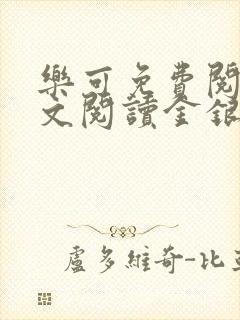 樂可免費閱
文閱讀金銀
盧多維奇-比亞